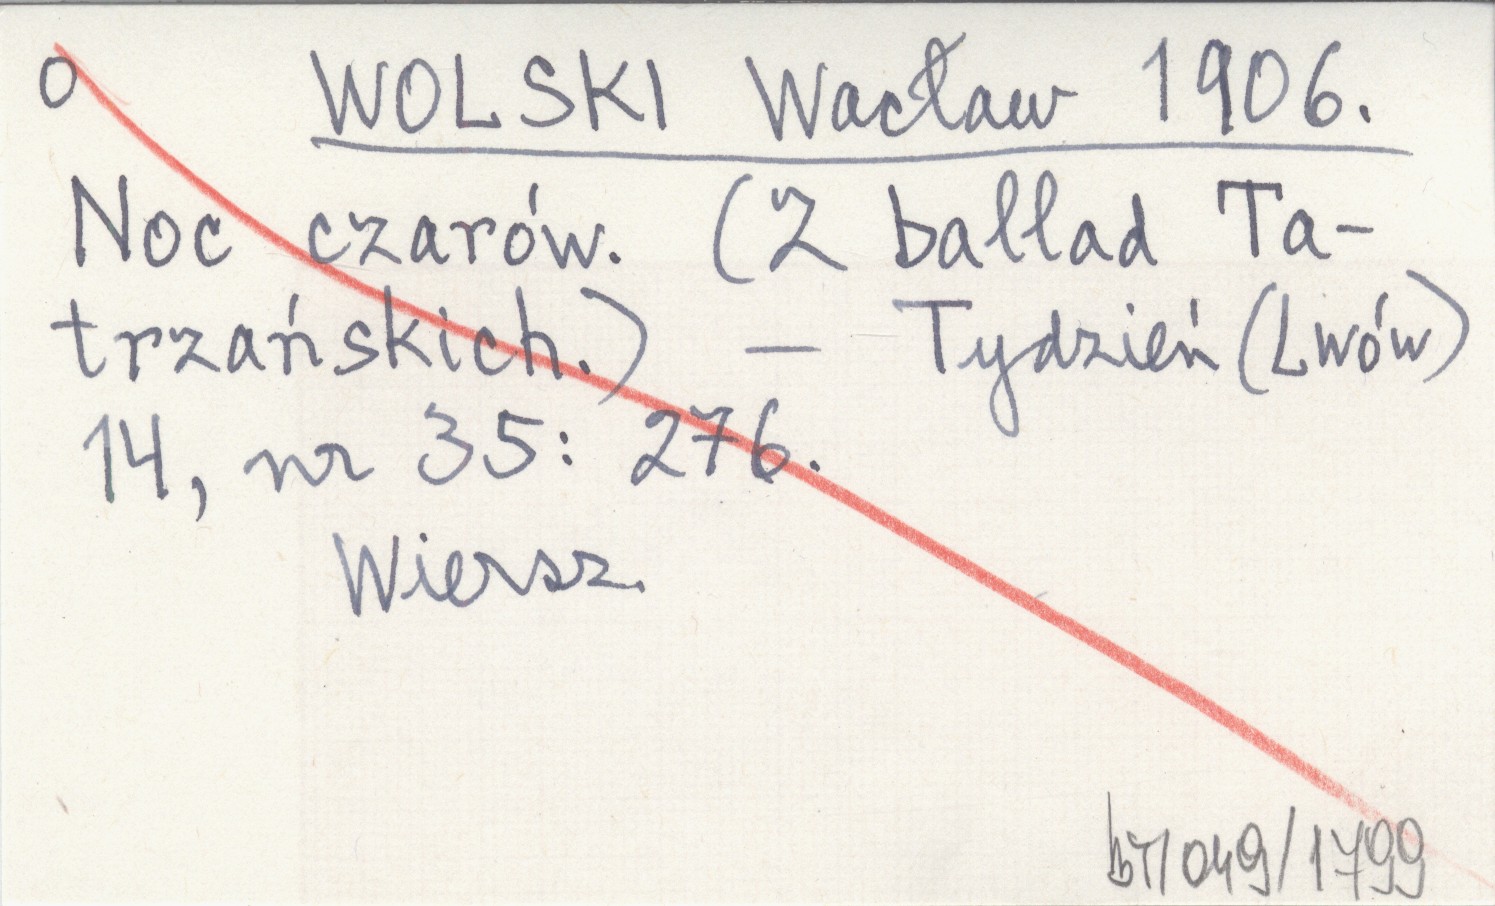 O WOLSKI Wacław 1906.
Noc czarów. (Z ballad Ta-
trzańskich.) — Tydzień (Lwów)
14, nr 35: 276.
Wiersz.
bT/049/1799